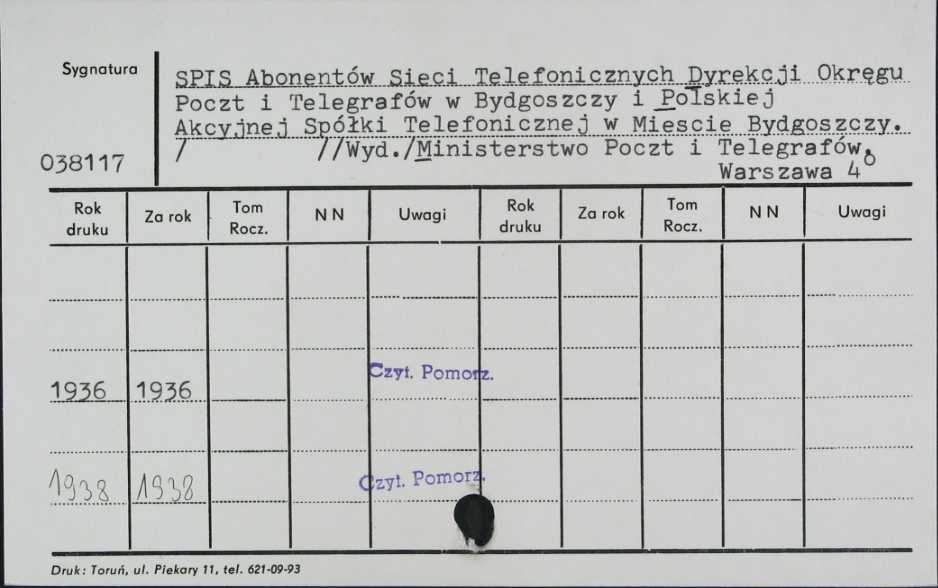 Sygnatura
SPIS Abonentów Sieci Telefonicznych Dyrekcji Okręgu
Poczt i Telegrafów w Bydgoszczy i Polskiej
Akcyjnej Spółki Telefonicznej w Miescie Bydgoszczy.
/ //Wyd./Ministerstwo Poczt i Telegrafów.
038117
Warszawa 4°
Rok druku Za rok Tom Rocz. N N Uwagi Rok druku Za rok Tom Rocz. N N Uwagi
1936 1936 Czyt. Pomorz.
1938 1938 Czyt. Pomorz.
Druk: Toruń, ul. Piekary 11, tel. 621-09-93